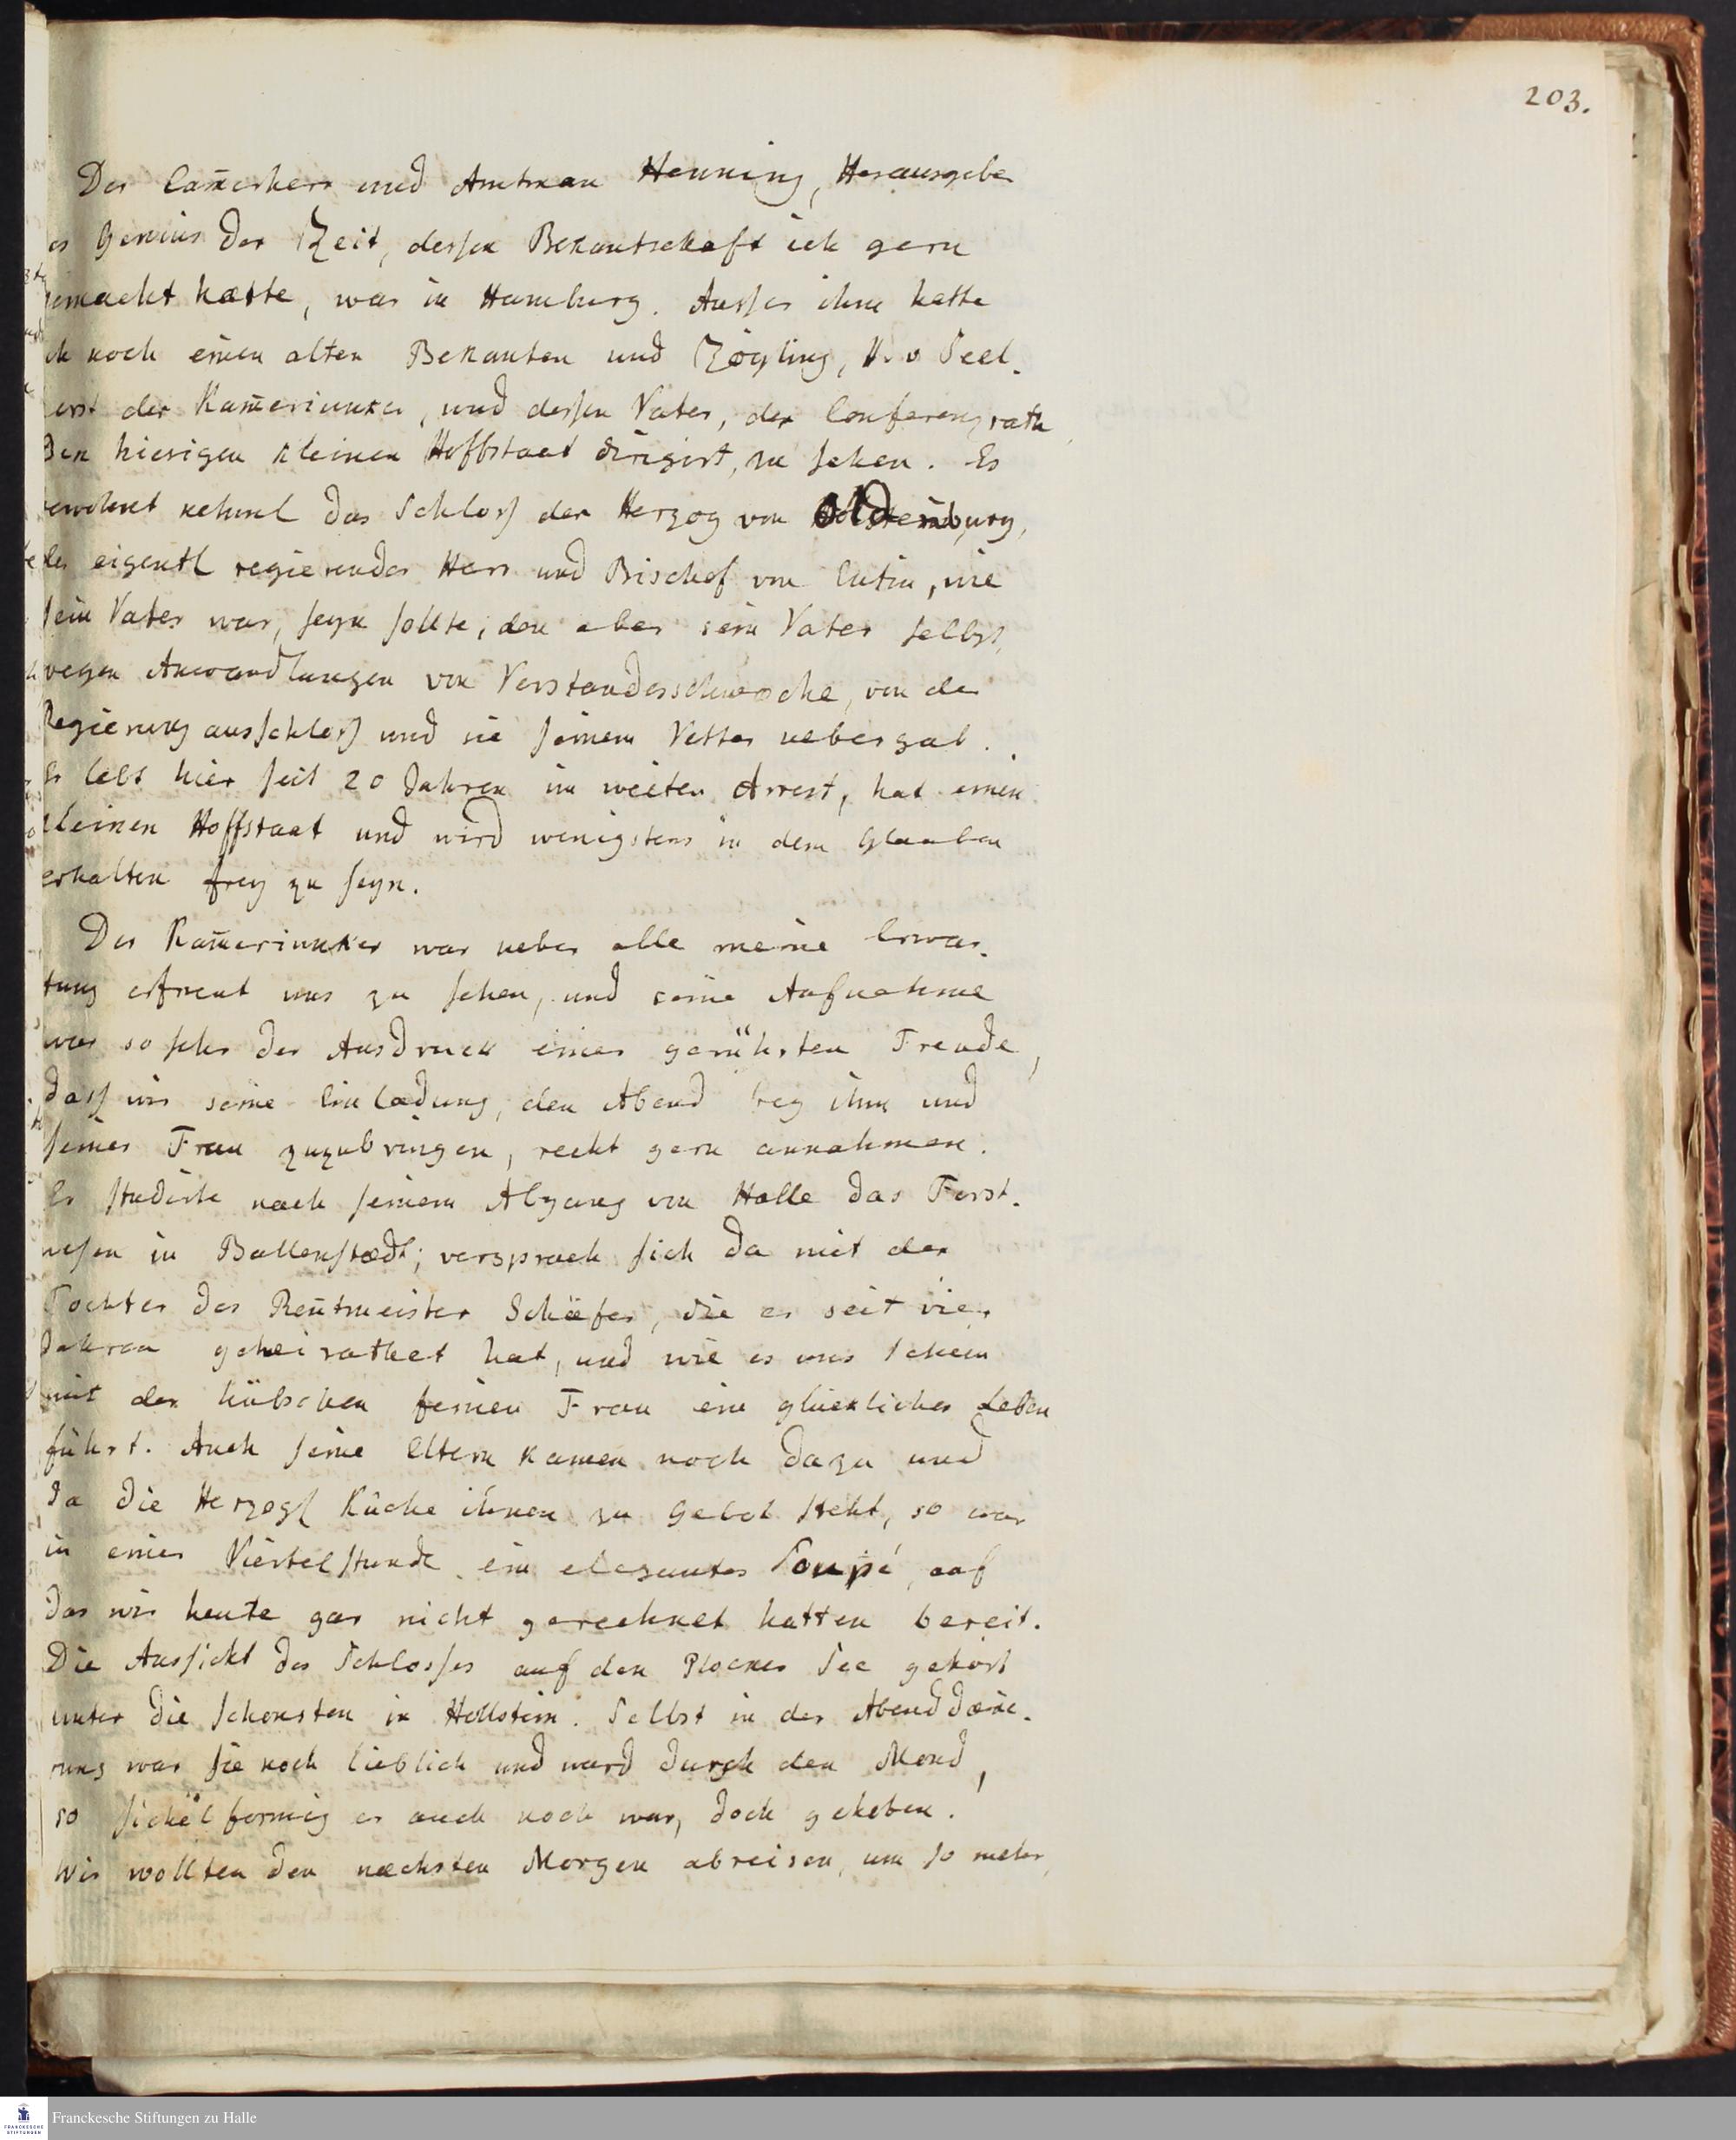 203.
Der Cam̄erherr und Amtman Henning, Herausgeber
es Genius der Zeit, dessen Bekantschaft ich gern
gemacht hätte, war in Hamburg. Ausser ihm hatte
ich noch einen alten Bekanten und Zögling, H. v Seel-
horst der Kam̄eriunker, und dessen Vater, der Conferenzrath,
den hiesigen kleinen Hoffstaat dirigirt, zu sehen. Es
bewohnt nehml das Schloss der Herzog von Oldenburg,
der eigentl regierender Herr und Bischof von Eutin, wie
sein Vater war, seyn sollte; den aber sein Vater selbst,
wegen Anwandlungen von Verstandesschwæche, von der
Regierung ausschloss und sie seinem Vetter uebergab.
Er lebt hier seit 20 Jahren im weiten Arrest, hat einen
kleinen Hoffstaat und wird wenigstens in dem Glauben
erhalten frey zu seyn.
Der Kam̄eriunker war ueber alle meine Erwar-
tung erfreut uns zu sehen, und seine Aufnahme
war so sehr der Ausdruck einer gerührten Freude,
dass wir seine Einladung, den Abend bey ihm und
seiner Frau zuzubringen, recht gern annahmen.
Er studirte nach seinem Abgang von Halle das Forst-
wesen in Ballenstædt; versprach sich da mit der
Tochter des Rentmeister Schäfer, die er seit vier
Jahren geheirathet hat, und wie es uns schein
mit der hübschen feinen Frau ein glückliches Leben
führt. Auch seine Eltern kamen noch dazu und
da die Herzogl Küche ihnen zu Gebot steht, so war
in einer Viertelstunde ein elegantes Soupé, auf
das wir heute gar nicht gerechnet hatten bereit.
Die Aussicht des Schlosses auf den Ploener See gehört
unter die schönsten in Hollstein. Selbst in der Abenddæm̄e-
rung war sie noch lieblich und ward durch den Mond,
so sichelförmig er auch noch war, doch gehoben.
Wir wollten den næchsten Morgen abreisen, um so mehr,
Franckesche Stiftungen zu Halle
FRANCKESCHE
STIFTUNGEN